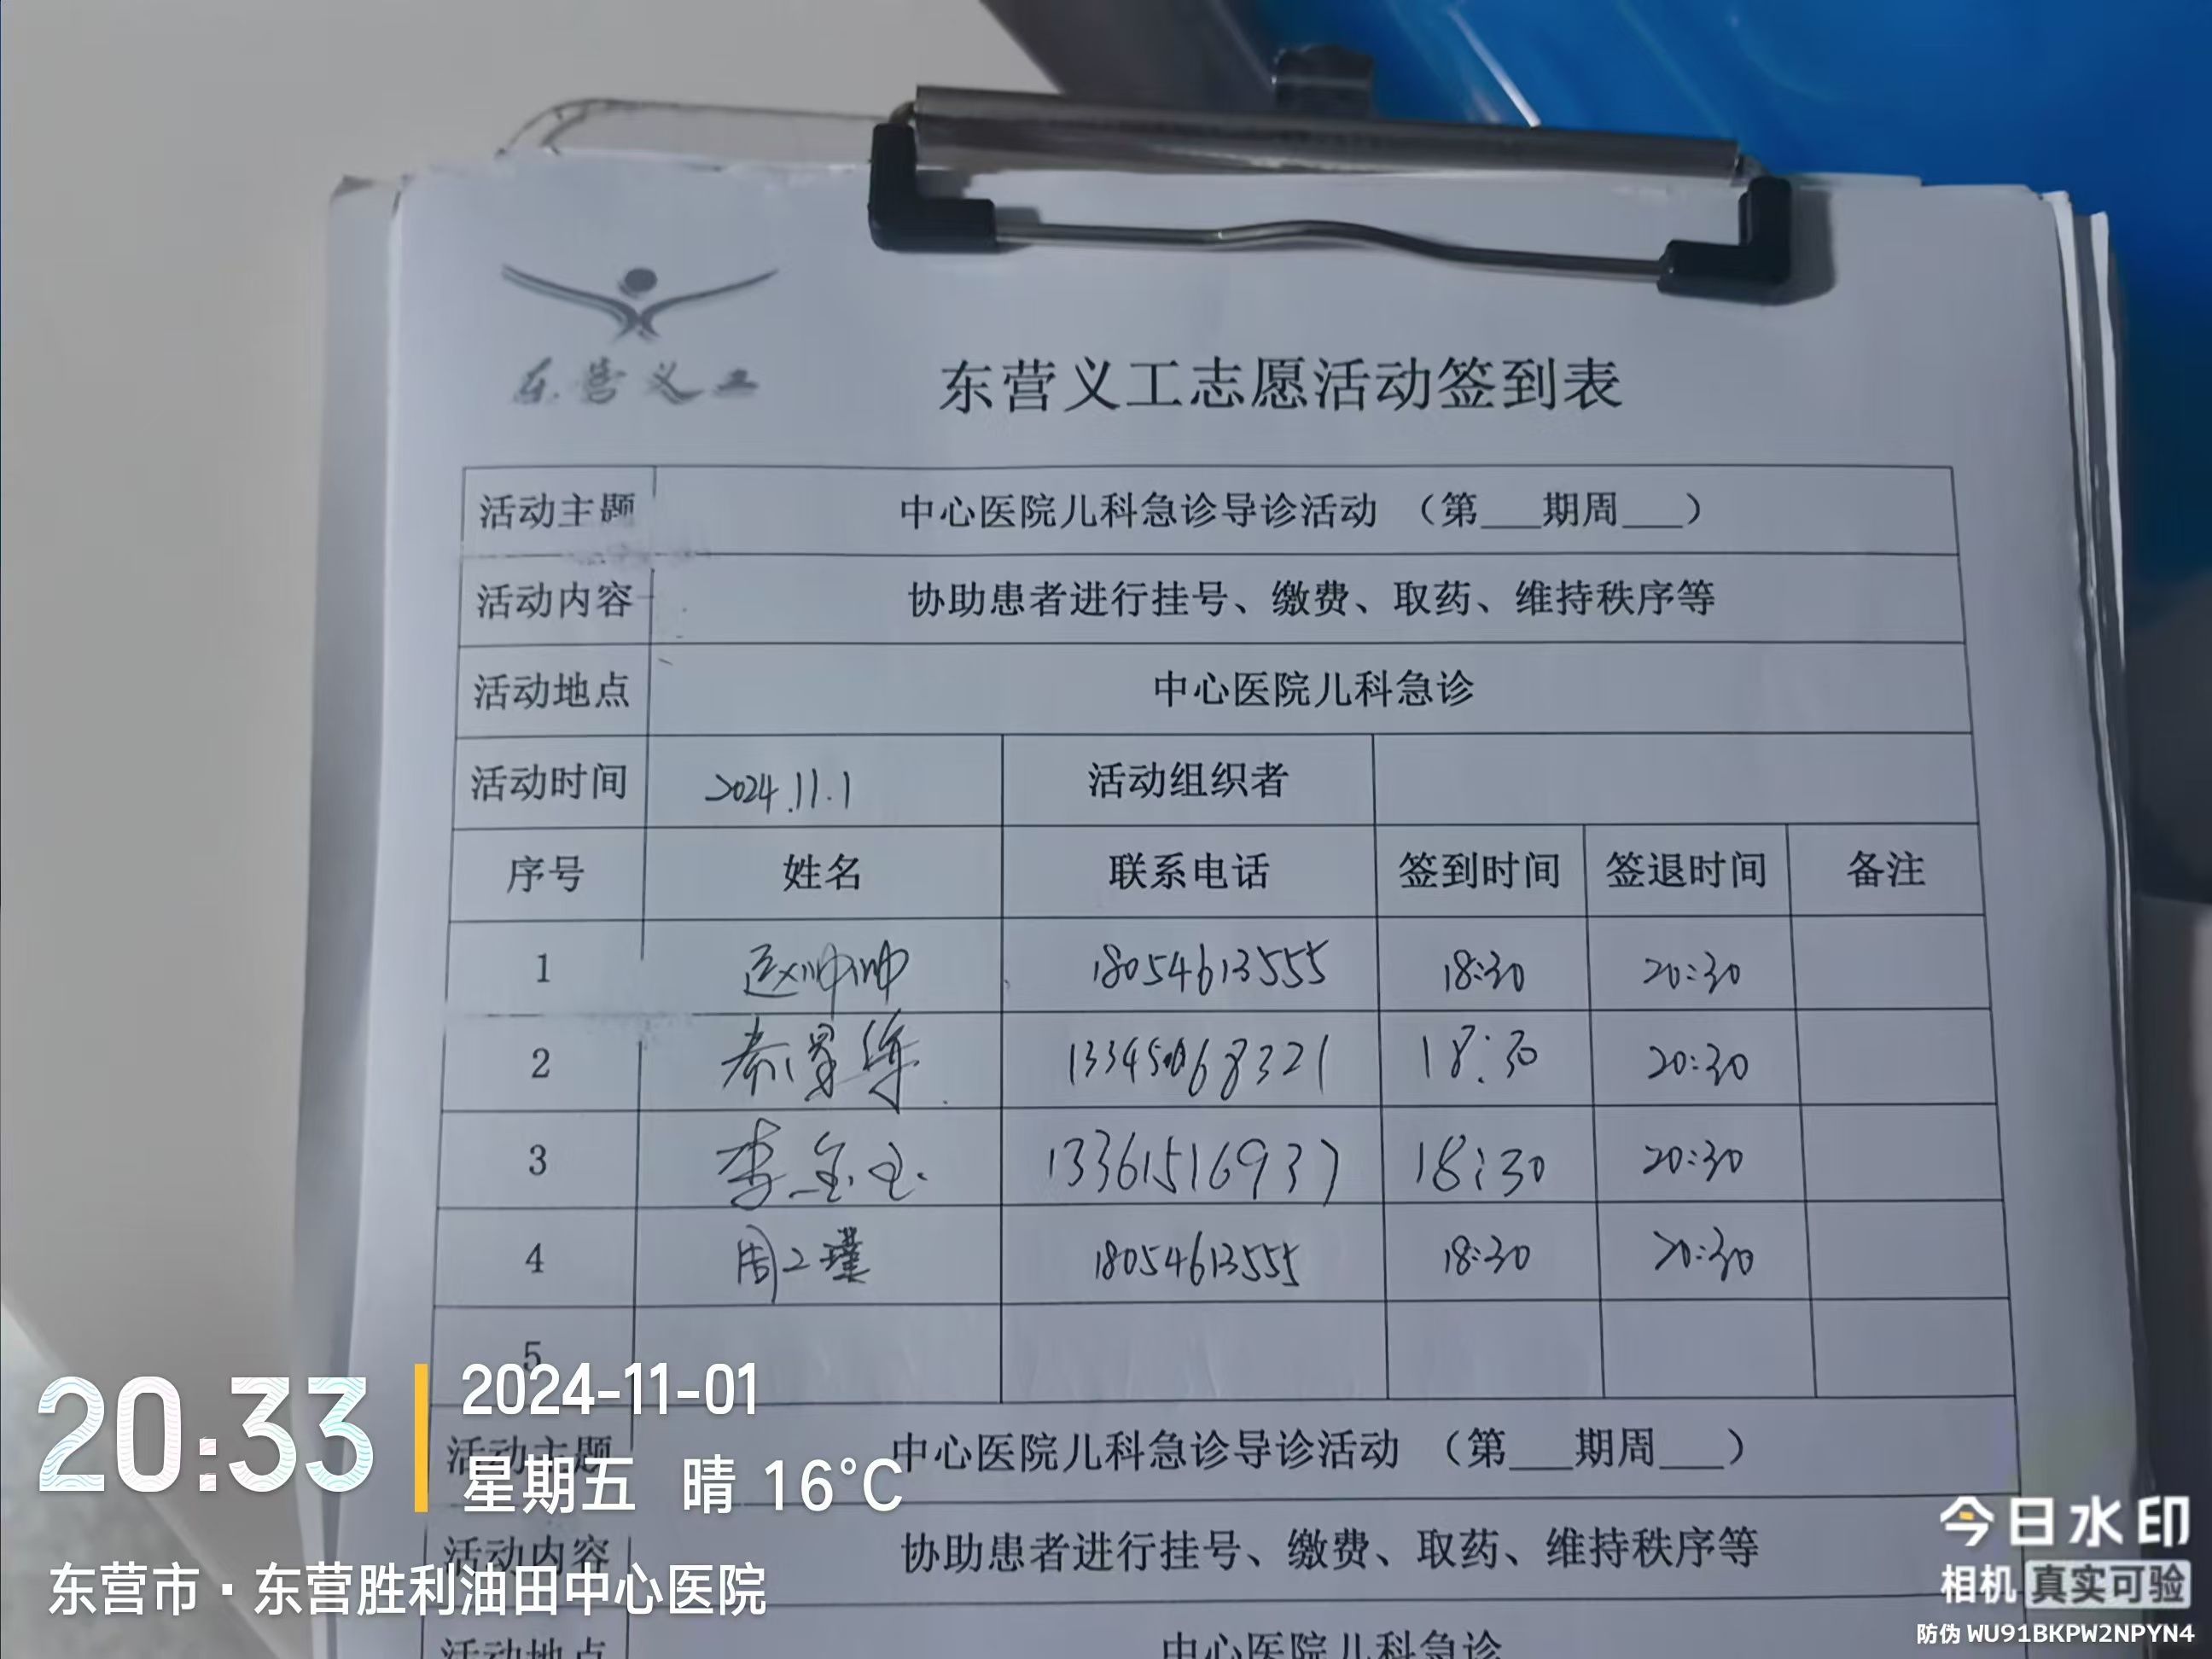 东营义工
东营义工志愿活动签到表
活动主题 中心医院儿科急诊导诊活动 （第___期周___）
活动内容 协助患者进行挂号、缴费、取药、维持秩序等
活动地点 中心医院儿科急诊
活动时间 2024.11.1 活动组织者
序号 姓名 联系电话 签到时间 签退时间 备注
1 赵帅帅 18054613555 18:30 20:30
2 18:30 20:30
3 李 13361516937 18:30 20:30
4 周 瑾 18054613555 18:30 20:30
5
活动主题 中心医院儿科急诊导诊活动 （第___期周___）
活动内容 协助患者进行挂号、缴费、取药、维持秩序等
活动地点 中心医院儿科急诊
20:33
2024-11-01
星期五 晴 16°C
东营市·东营胜利油田中心医院
今日水印
相机 真实可验
防伪 WU91BKPW2NPYN4